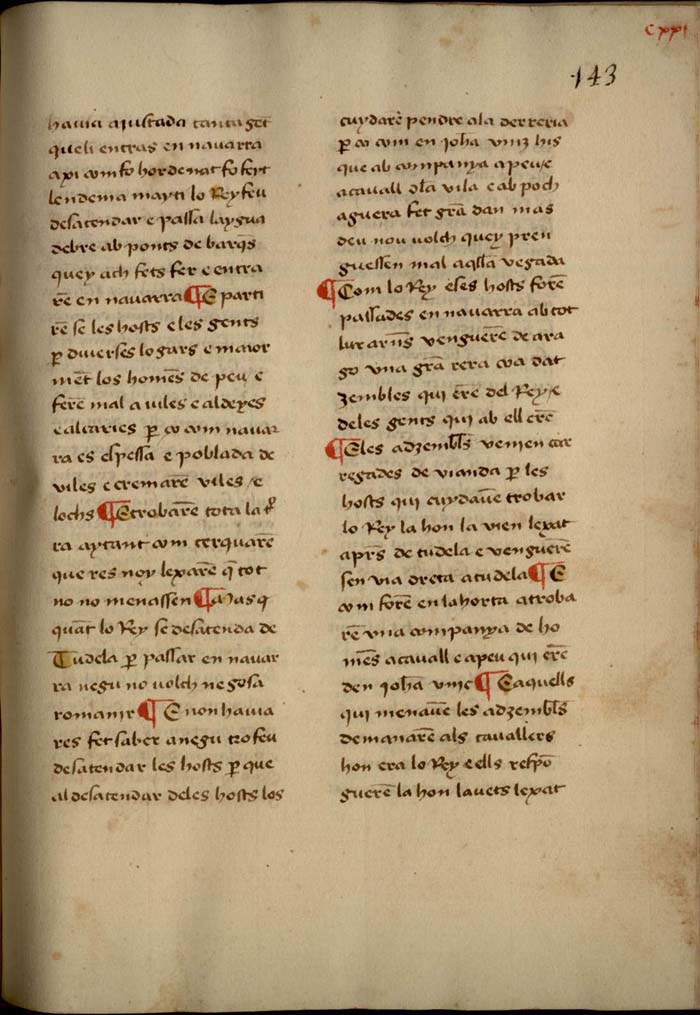 cxxi
143
havia aiustada tanta get̄
queli entras en navarra
axi com fo hordenat fo feyt
lendema mayti lo Rey feu
desatendar e passa laygua
debre ab ponts de barq̄s
quey ach fets fer e entra
rē en navarra ¶ E parti
rē se les hosts e les gents
p̄ diverses logars e maior
mēt los homēs de peu e
ferē mal a viles e aldeyes
e alcaries p̄ co com navar
ra es espessa e poblada de
viles e cremarē viles / e
lochs ¶ E trobarē tota la t̄
ra aytant com cerquarē
que res noy lexarē q̄ tot
no no menassen ¶ Mas q̄
quāt lo Rey se desatenda de
Tudela p̄ passar en navar
ra negu no volch ne gosa
romanir ¶ E non havia
res fet saber a negu tro feu
desatendar les hosts p̄ que
al desatendar deles hosts los
cuydarē pendre ala derreria
p̄ co com en joh̄a
que ab companya a peu / e
a cavall d̄la vila e ab poch
aguera fet grā dan mas
deu nou volch quey pren
guessen mal aq̄lla vegada
¶ Com lo Rey e ses hosts forē
passades en navarra ab tot
lur arn̄s venguerē de ara
go vna grā rera coa dat
zembles qui erē del Rey / e
deles gents qui ab ell erē
¶ E les adzembl̄s venien car
regades de vianda p̄ les
hosts qui cuydavē trobar
lo Rey la hon la vien lexat
apr̄s de tudela e venguerē
sen via dreta a tudela ¶ E
com forē en lahorta atroba
rē vna companya de ho
mēs a cavall e a peu qui erē
den joh̄a ¶ E aquells
qui menavē les adzembl̄s
demanarē als cavallers
hon era lo Rey e ells respō
guerē la hon lavets lexat